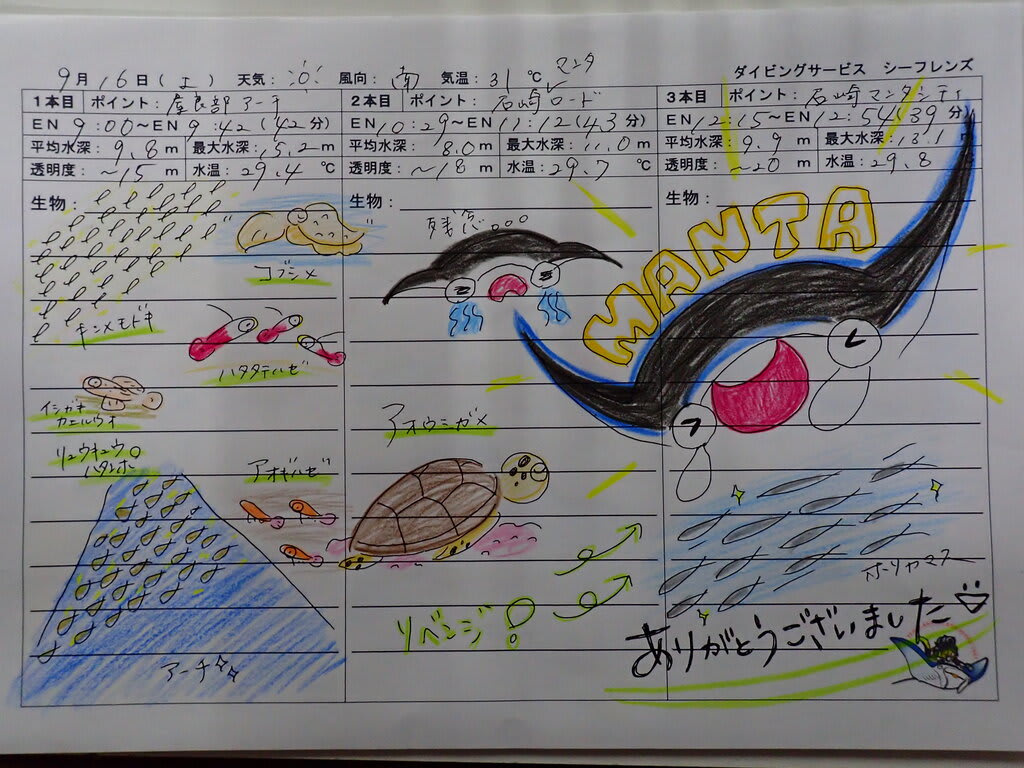 9月16日(土) 天気: 風向:南 気温:31℃ ダイビングサービス シーフレンズ
1本目 ポイント:屋良部アーチ
EN 9:00~EN 9:42(42分)
平均水深:9.8m 最大水深:15.2m
透明度:~15m 水温:29.4℃
生物:
コブシメ
キンメモドキ
ハタタテハゼ
イシガキ
カエルウオ
リュウキュウ
ハタンポ
アオギハゼ
アーチ
2本目 ポイント:石崎マンタロード
EN 10:29~EN 11:12(43分)
平均水深:8.0m 最大水深:11.0m
透明度:~18m 水温:29.7℃
生物:
残念...
アオウミガメ
リベンジ!
3本目 ポイント:石崎マンタシティ
EN 12:15~EN 12:54(39分)
平均水深:9.9m 最大水深:13.1m
透明度:~20m 水温:29.8℃
生物:
MANTA
ホソカマス
ありがとうございました